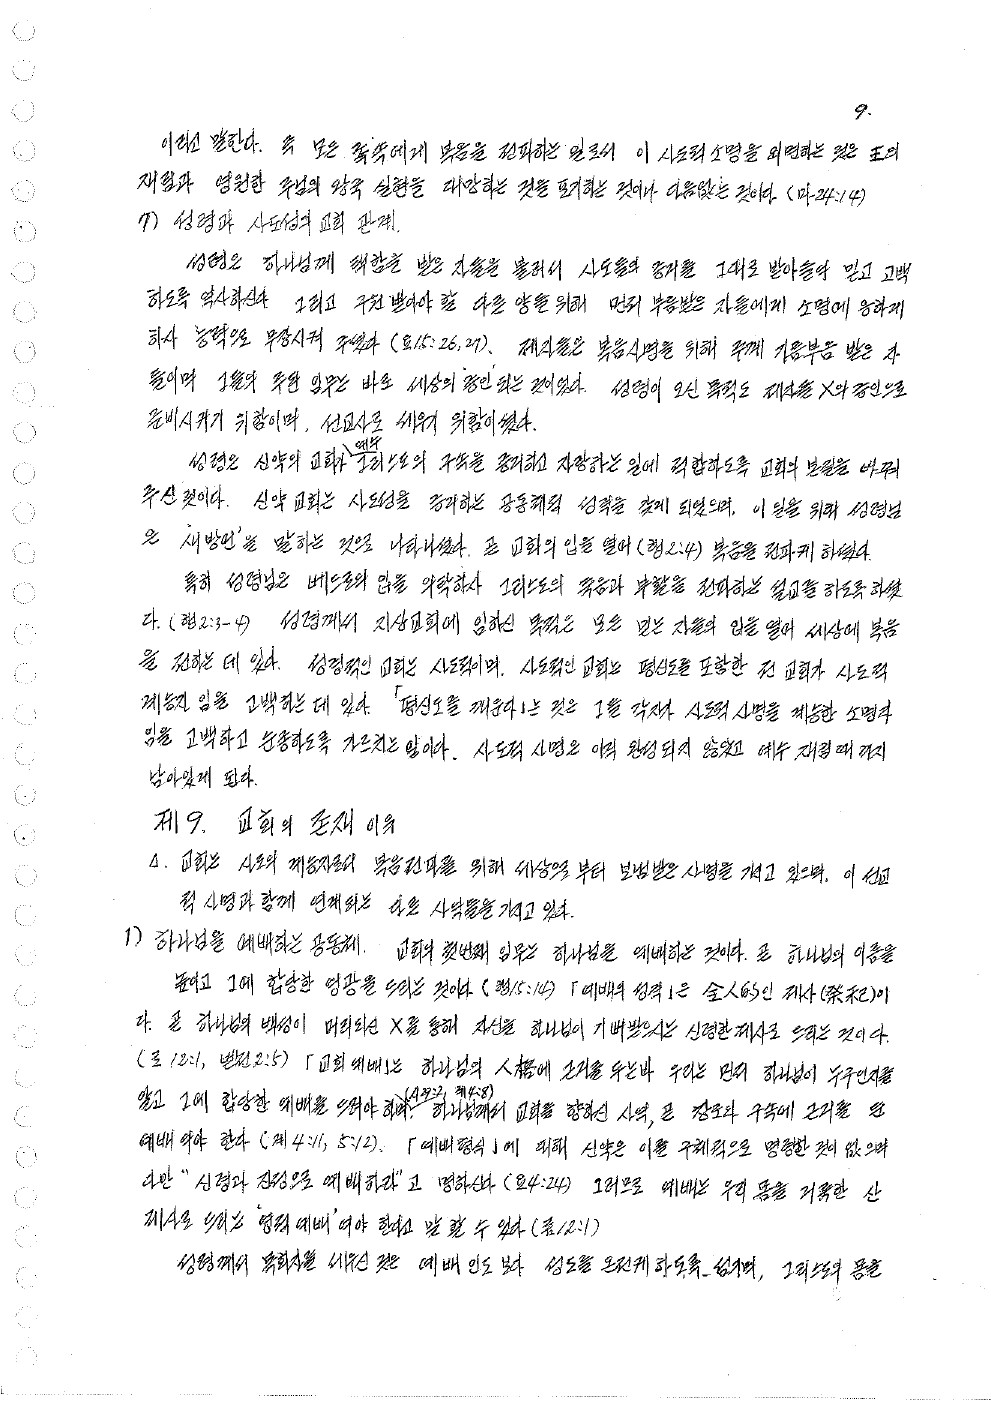 9.
이라고 말한다. 즉 모든 족속에게 복음을 전파하는 일로서 이 사도적 소명을 외면하는 것은 王의
재림과 영원한 주님의 왕국 실현을 대망하는 것을 포기하는 것이나 다음없는 것이다 (마24:14)
7) 성령과 사도성의 교회 관계.
성령은 하나님께 택함을 받은 자들을 불러서 사도들의 증거를 그대로 받아들여 믿고 고백
하도록 역사하신다 그리고 구원 받아야 할 다른 양을 위해 먼저 부음받은 자들에게 소명에 응하게
하사 능력으로 무장시켜 주셨다 (요15:26,27). 제자들은 복음사명을 위해 주께 기름부음 받은 자
들이며 그들의 주된 임무는 바로 세상의 '증인' 되는 것이었다. 성령이 오신 목적도 제자를 X의 증인으로
준비시키기 위함이며, 선교사로 세우기 위함이셨다.
성령은 신약의 교회가 예수 그리스도의 구속을 증거하고 자랑하는 일에 적합하도록 교회의 본질을 바꾸어
주신 것이다. 신약 교회는 사도성을 증거하는 공동체적 성격을 갖게 되었으며, 이 일을 위해 성령님
은 '새 방언'을 말하는 것으로 나타나셨다. 곧 교회의 입을 열어 (행2:4) 복음을 전파케 하셨다.
특히 성령님은 베드로의 입을 의탁하사 그리스도의 죽음과 부활을 전파하는 설교를 하도록 하셨
다. (행2:3-4) 성령께서 지상교회에 임하신 목적은 모든 믿는 자들의 입을 열어 세상에 복음
을 전하는 데 있다. 성경적인 교회는 사도적이며, 사도적인 교회는 평신도를 포함한 전 교회가 사도적
계승자 임을 고백하는 데 있다. 「평신도를 깨운다」는 것은 그들 각자가 사도적 사명을 계승한 소명자
임을 고백하고 순종하도록 가르치는 말이다. 사도적 사명은 아직 완성되지 않았고 예수 재림 때 까지
남아있게 된다.
제9. 교회의 존재 이유
△. 교회는 사도의 계승자로서 복음전파를 위해 세상으로 부터 보냄받은 사명을 가지고 있으며, 이 선교
적 사명과 함께 연계되는 다른 사역들을 가지고 있다.
1) 하나님을 예배하는 공동체. 교회의 첫번째 임무는 하나님을 예배하는 것이다. 곧 하나님의 이름을
높이고 그에 합당한 영광을 드리는 것이다 (행15:14) 「예배의 성격」은 全人的인 제사(祭祀)이
다. 곧 하나님의 백성이 머리되신 X를 통해 자신을 하나님이 기뻐받으시는 신령한 제사로 드리는 것이다.
(롬12:1, 벧전2:5) 「교회 예배」는 하나님의 人格에 근거를 두는바 우리는 먼저 하나님이 누구인지를
알고 그에 합당한 예배를 드려야 하며 (시95:2, 계4:8) 하나님께서 교회를 향하신 사역, 곧 창조와 구속에 근거를 둔
예배 여야 한다 (계4:11, 5:12). 「예배형식」에 대해 신약은 이를 구체적으로 명령한 것이 없으며
다만 "신령과 진정으로 예배하라"고 명하신다 (요4:24) 그러므로 예배는 우리 몸을 거룩한 산
제사로 드리는 '영적 예배' 여야 한다고 말 할 수 있다 (롬12:1)
성령께서 목회자를 세우신 것은 예배 인도 보다 성도를 온전케 하도록 섬기며, 그리스도의 몸을